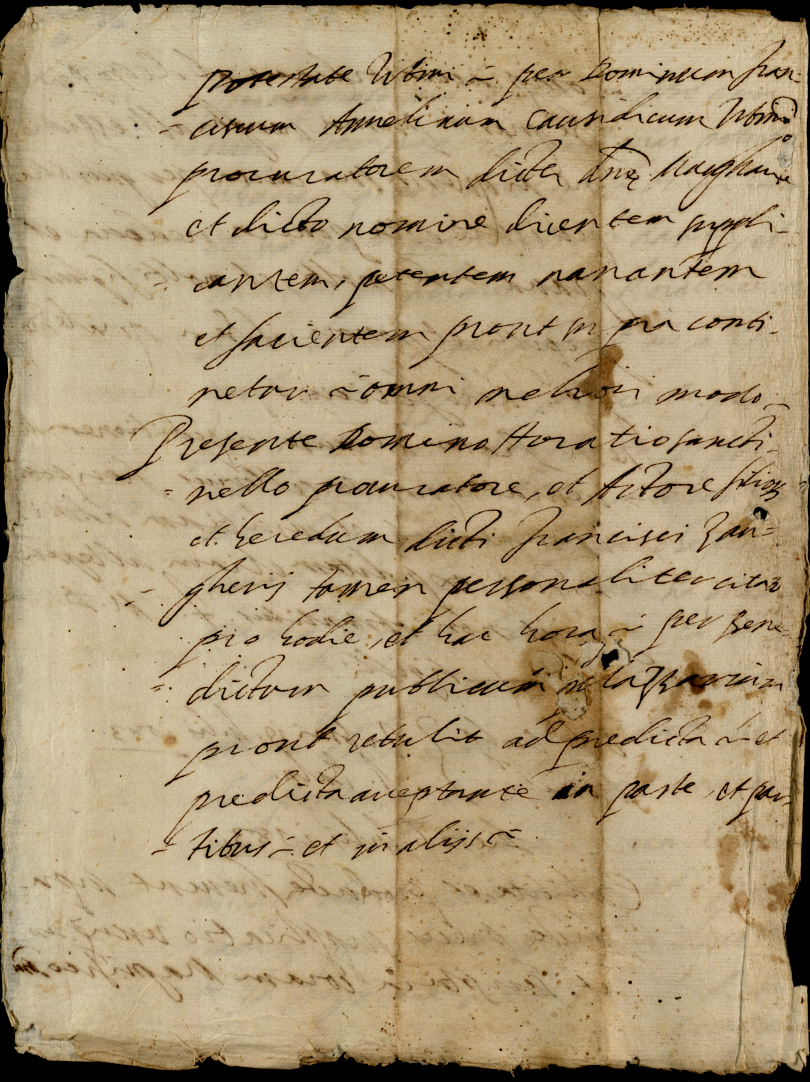 potestate Urbini ~ per Dominum fran-
-ciscum Annelinum causidicum Urbini
procuratorem dictę dnę
et dicto nomine dicentem suppli-
- cantem, petentem narrantem
et facientem prout supra conti-
netur ~ omni meliori modo ~
Presente Domino Horatio sancti-
= nello procuratore, et Actore filior
et heredum dicti francisci Zan=
- gherij tamen personaliter citato
pro hodie, et hac hora ~ per Bene-
= dictum publicum
prout retulit ad predicta ~ et
predicta acceptante in parte, et par-
- tibus ~ et in alijs ~